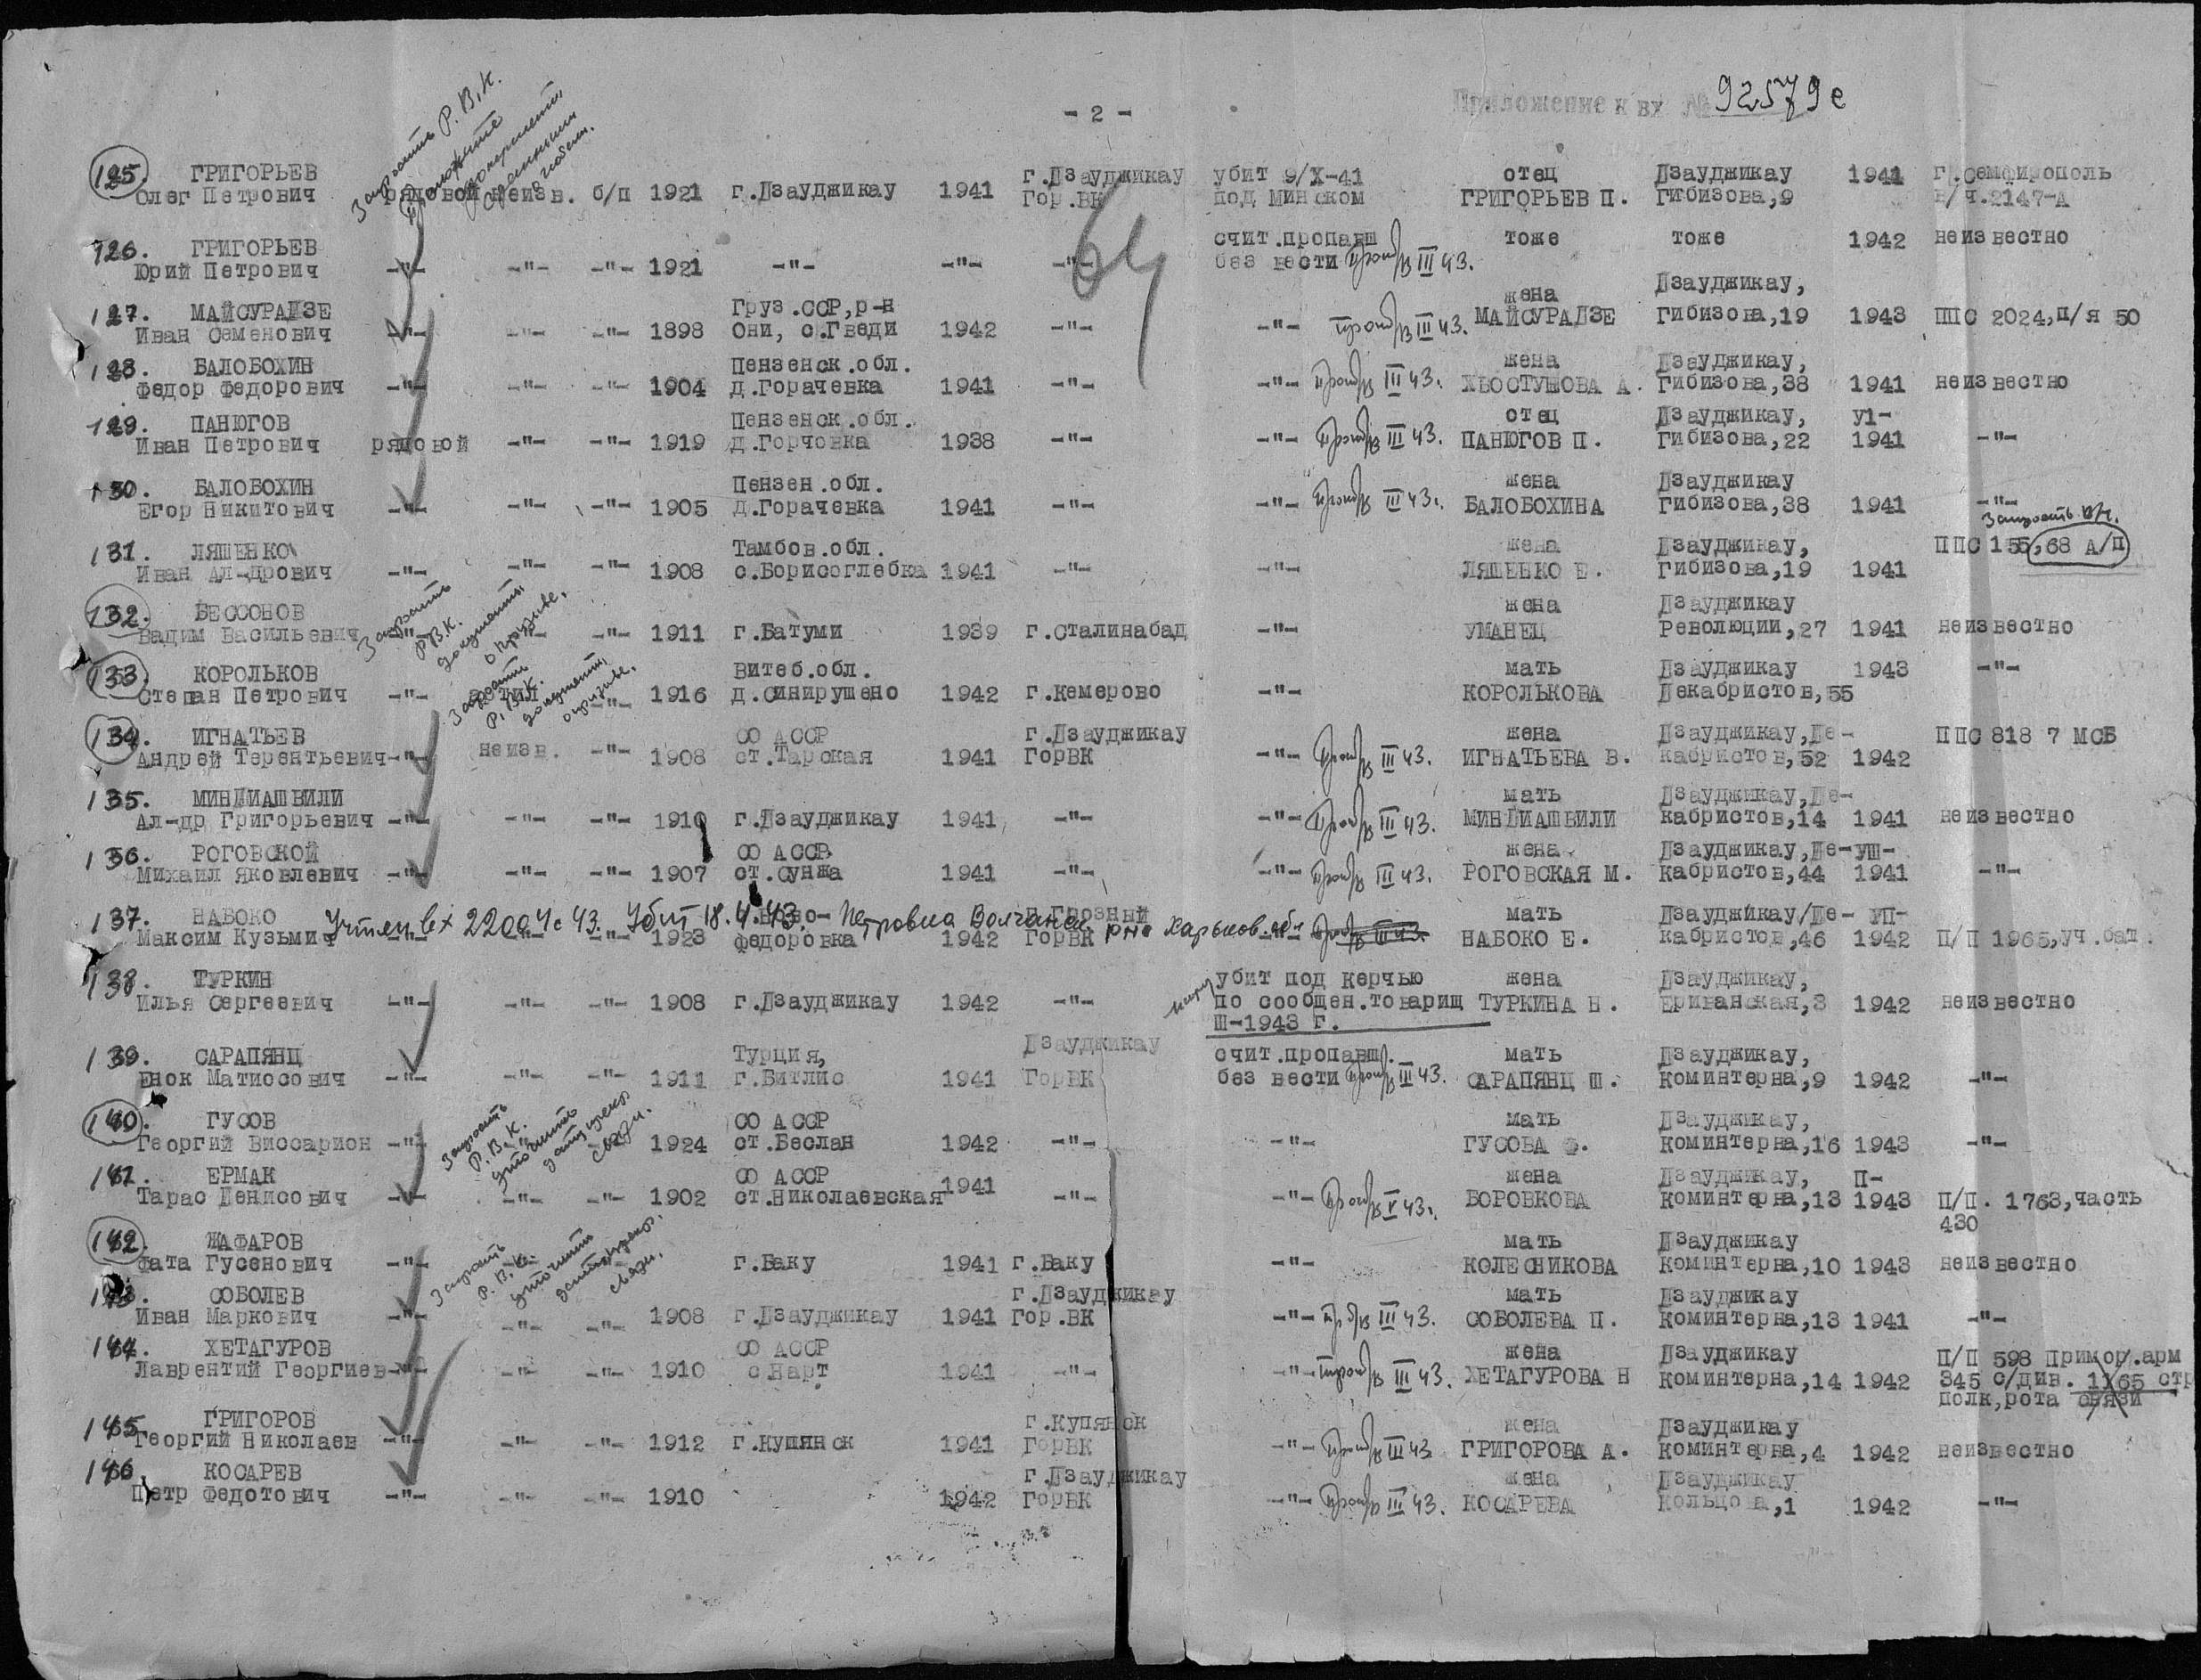 - 2 -
Приложение к вх № 92579с
125. ГРИГОРЬЕВ Олег Петрович рядовой неизв. б/п 1921 г.Дзауджикау 1941 г.Дзауджикау Гор.ВК убит 9/X-41 под Минском отец ГРИГОРЬЕВ П. Дзауджикау Гибизова,9 1941 г.Семфирополь в/ч.2147-А
126. ГРИГОРЬЕВ Юрий Петрович -"- -"- -"- 1921 -"- -"- -"- счит.пропавш без вести Проп/в III 43. тоже тоже 1942 неизвестно
127. МАЙСУРАДЗЕ Иван Семенович -"- -"- -"- 1898 Груз.ССР,р-н Они, с.Гведи 1942 -"- -"- Проп/в III 43. жена МАЙСУРАДЗЕ Дзауджикау, Гибизова,19 1943 ППС 2024,п/я 50
128. БАЛОБОХИН Федор Федорович -"- -"- -"- 1904 Пензенск.обл. д.Горачевка 1941 -"- -"- Проп/в III 43. жена ХВОСТУШОВА А. Дзауджикау, Гибизова,38 1941 неизвестно
129. ПАНЮГОВ Иван Петрович рядовой -"- -"- 1919 Пензенск.обл. д.Горчовка 1938 -"- -"- Проп/в III 43. отец ПАНЮГОВ П. Дзауджикау, Гибизова,22 У1-1941 -"-
130. БАЛОБОХИН Егор Никитович -"- -"- -"- 1905 Пензен.обл. д.Горачевка 1941 -"- -"- Проп/в III 43. жена БАЛОБОХИНА Дзауджикау Гибизова,38 1941 -"-
131. ЛЯШЕНКО Иван Ал-дрович -"- -"- -"- 1908 Тамбов.обл. с.Борисоглебка 1941 -"- -"- жена ЛЯШЕНКО Е. Дзауджикау, Гибизова,19 1941 ППС 155,68 А/П Запросить в/ч.
132. БЕССОНОВ Вадим Васильевич -"- -"- -"- 1911 г.Батуми 1939 г.Сталинабад -"- жена УМАНЕЦ Дзауджикау Революции,27 1941 неизвестно
Запросить Р.В.К. документы о призыве.
133. КОРОЛЬКОВ Степан Петрович -"- -"- 1916 Витеб.обл. д.Синирушено 1942 г.Кемерово -"- мать КОРОЛЬКОВА Дзауджикау Декабристов,55 1943 -"-
Запросить Р.В.К. документы о призыве.
134. ИГНАТЬЕВ Андрей Терентьевич -"- неизв. -"- 1908 СО АССР ст.Тарская 1941 г.Дзауджикау ГорВК -"- Проп/в III 43. жена ИГНАТЬЕВА В. Дзауджикау,Декабристов,52 1942 ППС 818 7 МСБ
135. МИНДИАШВИЛИ Ал-др Григорьевич -"- -"- -"- 1910 г.Дзауджикау 1941 -"- -"- Проп/в III 43. мать МИНДИАШВИЛИ Дзауджикау,Де-кабристов,14 1941 неизвестно
136. РОГОВСКОЙ Михаил Яковлевич -"- -"- -"- 1907 СО АССР ст.Сунжа 1941 -"- -"- Проп/в III 43. жена РОГОВСКАЯ М. Дзауджикау,Де-кабристов,44 УШ-1941 -"-
137. НАБОКО Максим Кузьмич -"- -"- -"- 1923 Ново-Федоровка 1942 г.Грозный ГорВК -"- мать НАБОКО Е. Дзауджикау/Де-кабристов,46 УП-1942 П/П 1965,уч.бат.
Учтен вх 22004с 43. Убит 18.4.43. Петровка Волчанск. р-на Харьков.обл
138. ТУРКИН Илья Сергеевич -"- -"- -"- 1908 г.Дзауджикау 1942 -"- убит под Керчью по сообщен.товарищ Ш-1943 г. жена ТУРКИНА Н. Дзауджикау, Ериванская,3 1942 неизвестно
139. САРАПЯНЦ Енок Матиосович -"- -"- -"- 1911 Турция, г.Битлис 1941 Дзауджикау ГорВК счит.пропавш. без вести Проп/в III 43. мать САРАПЯНЦ Ш. Дзауджикау, Коминтерна,9 1942 -"-
140. ГУСОВ Георгий Виссарион -"- 1924 СО АССР ст.Беслан 1942 -"- -"- мать ГУСОВА Дзауджикау, Коминтерна,16 1943 -"-
Запросить Р.В.К. уточнить дату связи.
141. ЕРМАК Тарас Денисович -"- -"- -"- 1902 СО АССР ст.Николаевская 1941 -"- -"- Проп/в V 43. жена БОРОВКОВА Дзауджикау, Коминтерна,13 П-1943 П/П. 1763,часть 430
142. ЖАФАРОВ Фата Гусенович -"- г.Баку 1941 г.Баку -"- мать КОЛЕСНИКОВА Дзауджикау Коминтерна,10 1943 неизвестно
Запросить Р.В.К. уточнить связи.
143. СОБОЛЕВ Иван Маркович -"- -"- -"- 1908 г.Дзауджикау 1941 г.Дзауджикау Гор.ВК -"- Пр/в III 43. мать СОБОЛЕВА П. Дзауджикау Коминтерна,13 1941 -"-
144. ХЕТАГУРОВ Лаврентий Георгиев -"- -"- -"- 1910 СО АССР с.Нарт 1941 -"- -"- Проп/в III 43. жена ХЕТАГУРОВА Н Дзауджикау Коминтерна,14 1942 П/П 598 Примор.арм 345 с/див. 1165 стр полк,рота связи
145. ГРИГОРОВ Георгий Николаев -"- -"- -"- 1912 г.Купянск 1941 г.Купянск ГорВК -"- Проп/в III 43 жена ГРИГОРОВА А. Дзауджикау Коминтерна,4 1942 неизвестно
146 КОСАРЕВ Петр Федотович -"- -"- -"- 1910 1942 г.Дзауджикау ГорВК -"- Проп/в III 43. жена КОСАРЕВА Дзауджикау Кольцова,1 1942 -"-